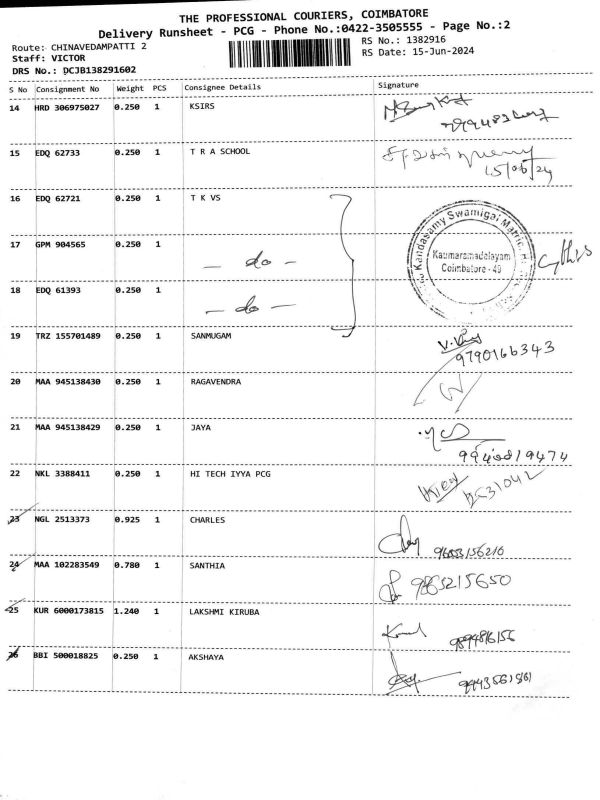 THE PROFESSIONAL COURIERS, COIMBATORE
Delivery Runsheet - PCG - Phone No.:0422-3505555 - Page No.:2
Route: CHINAVEDAMPATTI 2
RS No.: 1382916
Staff: VICTOR
RS Date: 15-Jun-2024
DRS No.: DCJB138291602
S No Consignment No Weight PCS Consignee Details Signature
14 HRD 306975027 0.250 1 KSIRS
15 EDQ 62733 0.250 1 T R A SCHOOL
15/06/24
16 EDQ 62721 0.250 1 T K VS
Kandasamy Swamigal Matric
Kaumaramadalayam
Coimbatore - 49
17 GPM 904565 0.250 1 - do -
18 EDQ 61393 0.250 1 - do -
19 TRZ 155701489 0.250 1 SANMUGAM
9790166343
20 MAA 945138430 0.250 1 RAGAVENDRA
21 MAA 945138429 0.250 1 JAYA
22 NKL 3388411 0.250 1 HI TECH IYYA PCG
23 NGL 2513373 0.925 1 CHARLES
24 MAA 102283549 0.780 1 SANTHIA
9865215650
25 KUR 6000173815 1.240 1 LAKSHMI KIRUBA
26 BBI 500018825 0.250 1 AKSHAYA